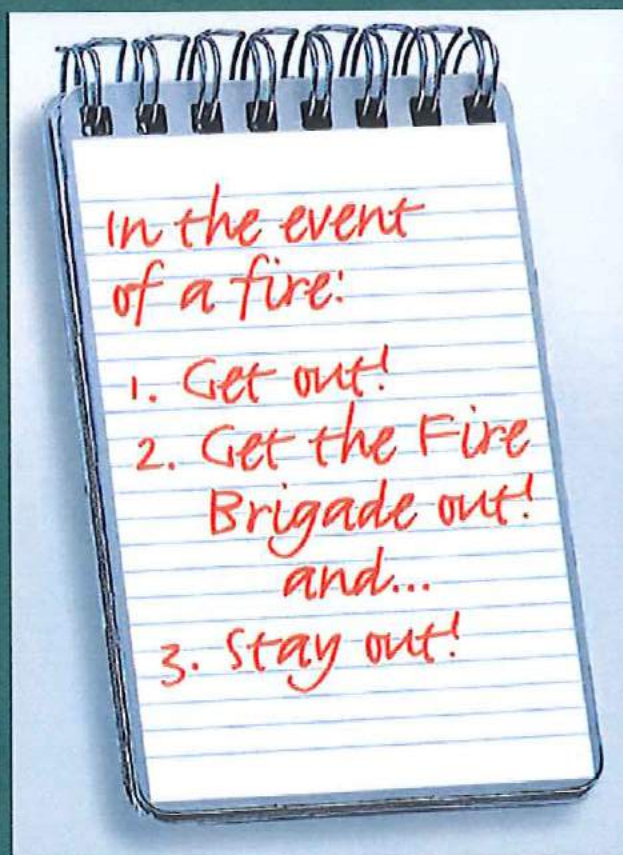 In the event
of a fire:
1. Get out!
2. Get the Fire
Brigade out!
and...
3. Stay out!